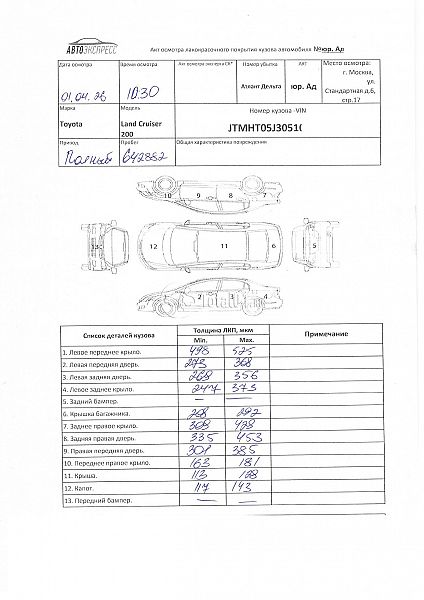 АВТОЭКСПРЕСС
Акт осмотра лакокрасочного покрытия кузова автомобиля №юр. Ад
Дата осмотра
01.04.26
Время осмотра
10.30
Акт осмотра эксперта СК*
Номер убытка
Атлант Дельта
АКТ
юр. Ад
Место осмотра:
г. Москва,
ул.
Стандартная д.6,
стр.17
Марка
Toyota
Модель
Land Cruiser
200
Номер кузова -VIN
JTMHT05J3051(
Привод
Полный
Пробег
642882
Общая характеристика повреждения
10 9 8 7
13 12 11 6 5
1 2 3 4
Список деталей кузова Толщина ЛКП, мкм Примечание
Min. Max.
1. Левое переднее крыло. 498 525
2. Левая передняя дверь. 273 368
3. Левая задняя дверь. 269 356
4. Левое заднее крыло. 247 373
5. Задний бампер. — —
6. Крышка багажника. 268 292
7. Заднее правое крыло. 368 428
8. Задняя правая дверь. 335 453
9. Правая передняя дверь. 301 385
10. Переднее правое крыло. 163 181
11. Крыша. 113 128
12. Капот. 117 143
13. Передний бампер. — —